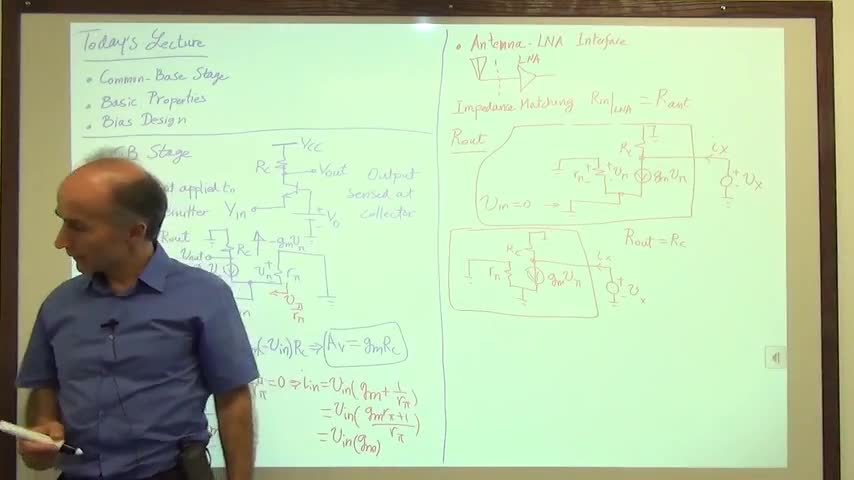 Today's Lecture
• Common-Base Stage
• Basic Properties
• Bias Design
CB Stage
applied to
emitter
Vin
Rc
Vcc
Vout
Vb
Output
sensed at
collector
Rout
vout
Rc
-gmvπ
vπ
+
-
rπ
vπ/rπ
(-vin)Rc ⇒ Av = gmRc
= 0 ⇒ iin = vin(gm + 1/rπ)
= vin(gmrπ+1/rπ)
= vin(gm)
• Antenna-LNA Interface
LNA
Impedance Matching Rin|LNA = Rant
Rout
Rc
ix
rπ
+
vπ
-
gmvπ
+
-
vx
vin=0
Rout = Rc
Rc
ix
rπ
gmvπ
+
-
vx